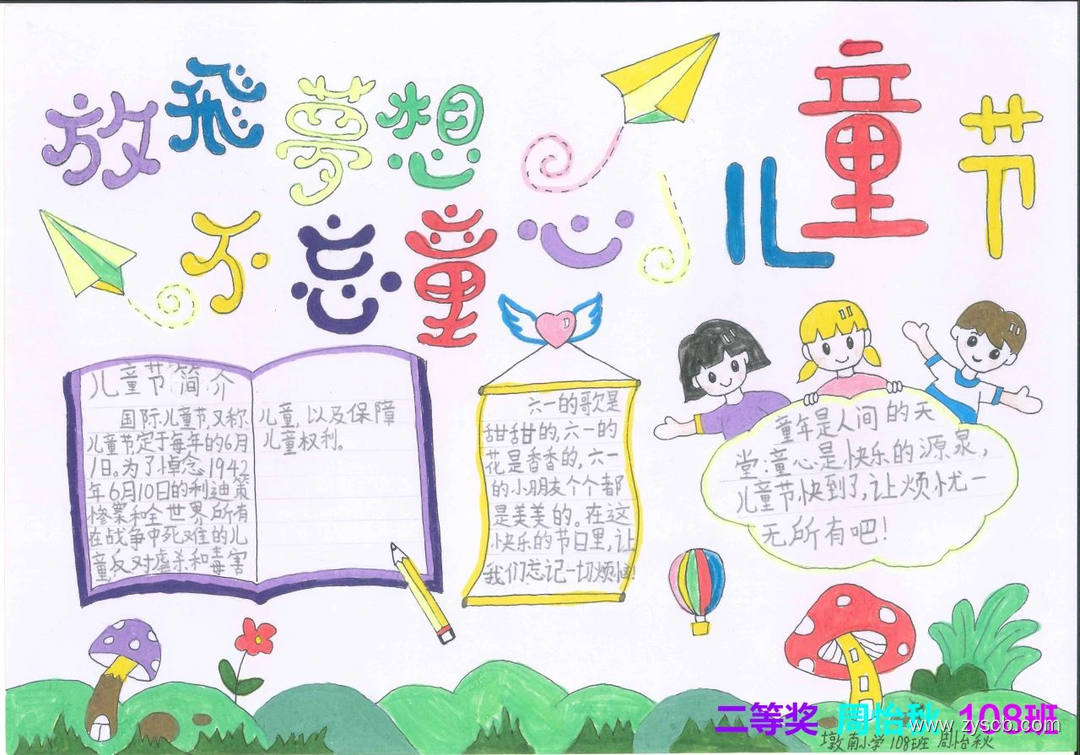 放飛夢想
不忘童心
儿童节
儿童节简介
国际儿童节,又称
儿童节定于每年的6月
1日。为了悼念1942
年6月10日的利迪策
惨案和全世界所有
在战争中死难的儿
童,反对虐杀和毒害
儿童,以及保障
儿童权利。
六一的歌是
甜甜的,六一的
花是香香的,六一
的小朋友个个都
是美美的。在这
快乐的节日里,让
我们忘记一切烦恼!
童年是人间的天
堂;童心是快乐的源泉,
儿童节快到了,让烦忧一
无所有吧!
二等奖 周怡秋 108班
www.zyscb.com
墩南小学108班 周怡秋